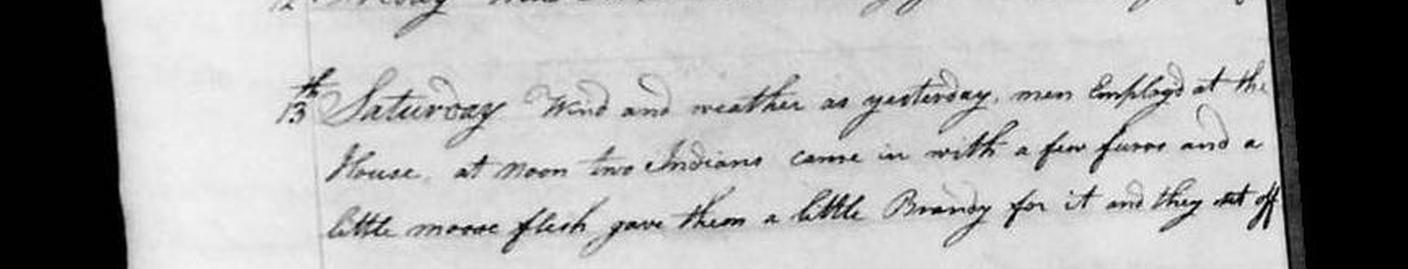 13th Saturday Wind and weather as yesterday, men Employd at the
House, at Noon two Indians came in with a few furrs and a
little moose flesh gave them a little Brandy for it and they set off